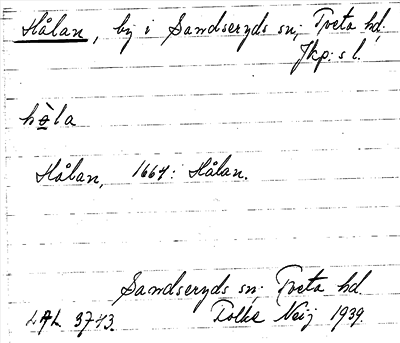 Hålan, by i Sandseryds sn, Tveta hd,
Jkp:s l.
hò̱la
Hålan, 1664: Hålan.
Sandseryds sn, Tveta hd
LAL 3743. Folke Neij 1939.